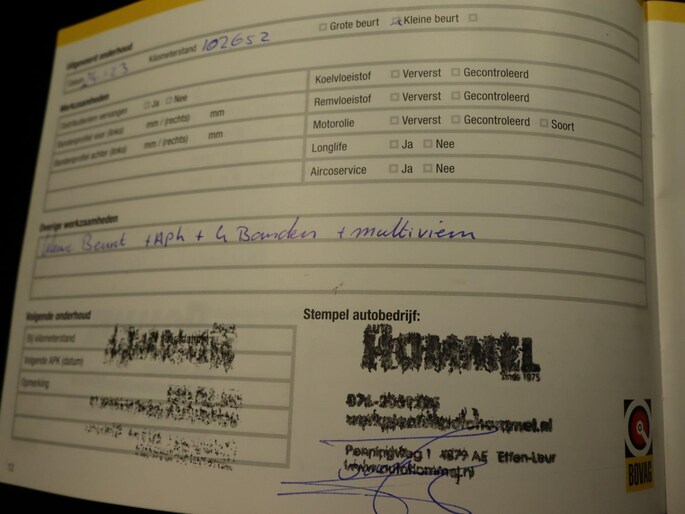 Uitgevoerd onderhoud
Kilometerstand 102652 Grote beurt Kleine beurt
Werkzaamheden
Distributieriem vervangen Ja Nee
Bandenprofiel voor (links) mm / (rechts) mm
Bandenprofiel achter (links) mm / (rechts) mm
Koelvloeistof Ververst Gecontroleerd
Remvloeistof Ververst Gecontroleerd
Motorolie Ververst Gecontroleerd Soort
Longlife Ja Nee
Aircoservice Ja Nee
Overige werkzaamheden
Beurt + APK + 4 Banden + multiriem
Volgende onderhoud
Bij kilometerstand
Volgende APK (datum)
Opmerking
Stempel autobedrijf:
AUTO
HOMMEL
sinds 1975
Penningweg 1 4879 AE Etten-Leur
www.autohommel.nl
BOVAG